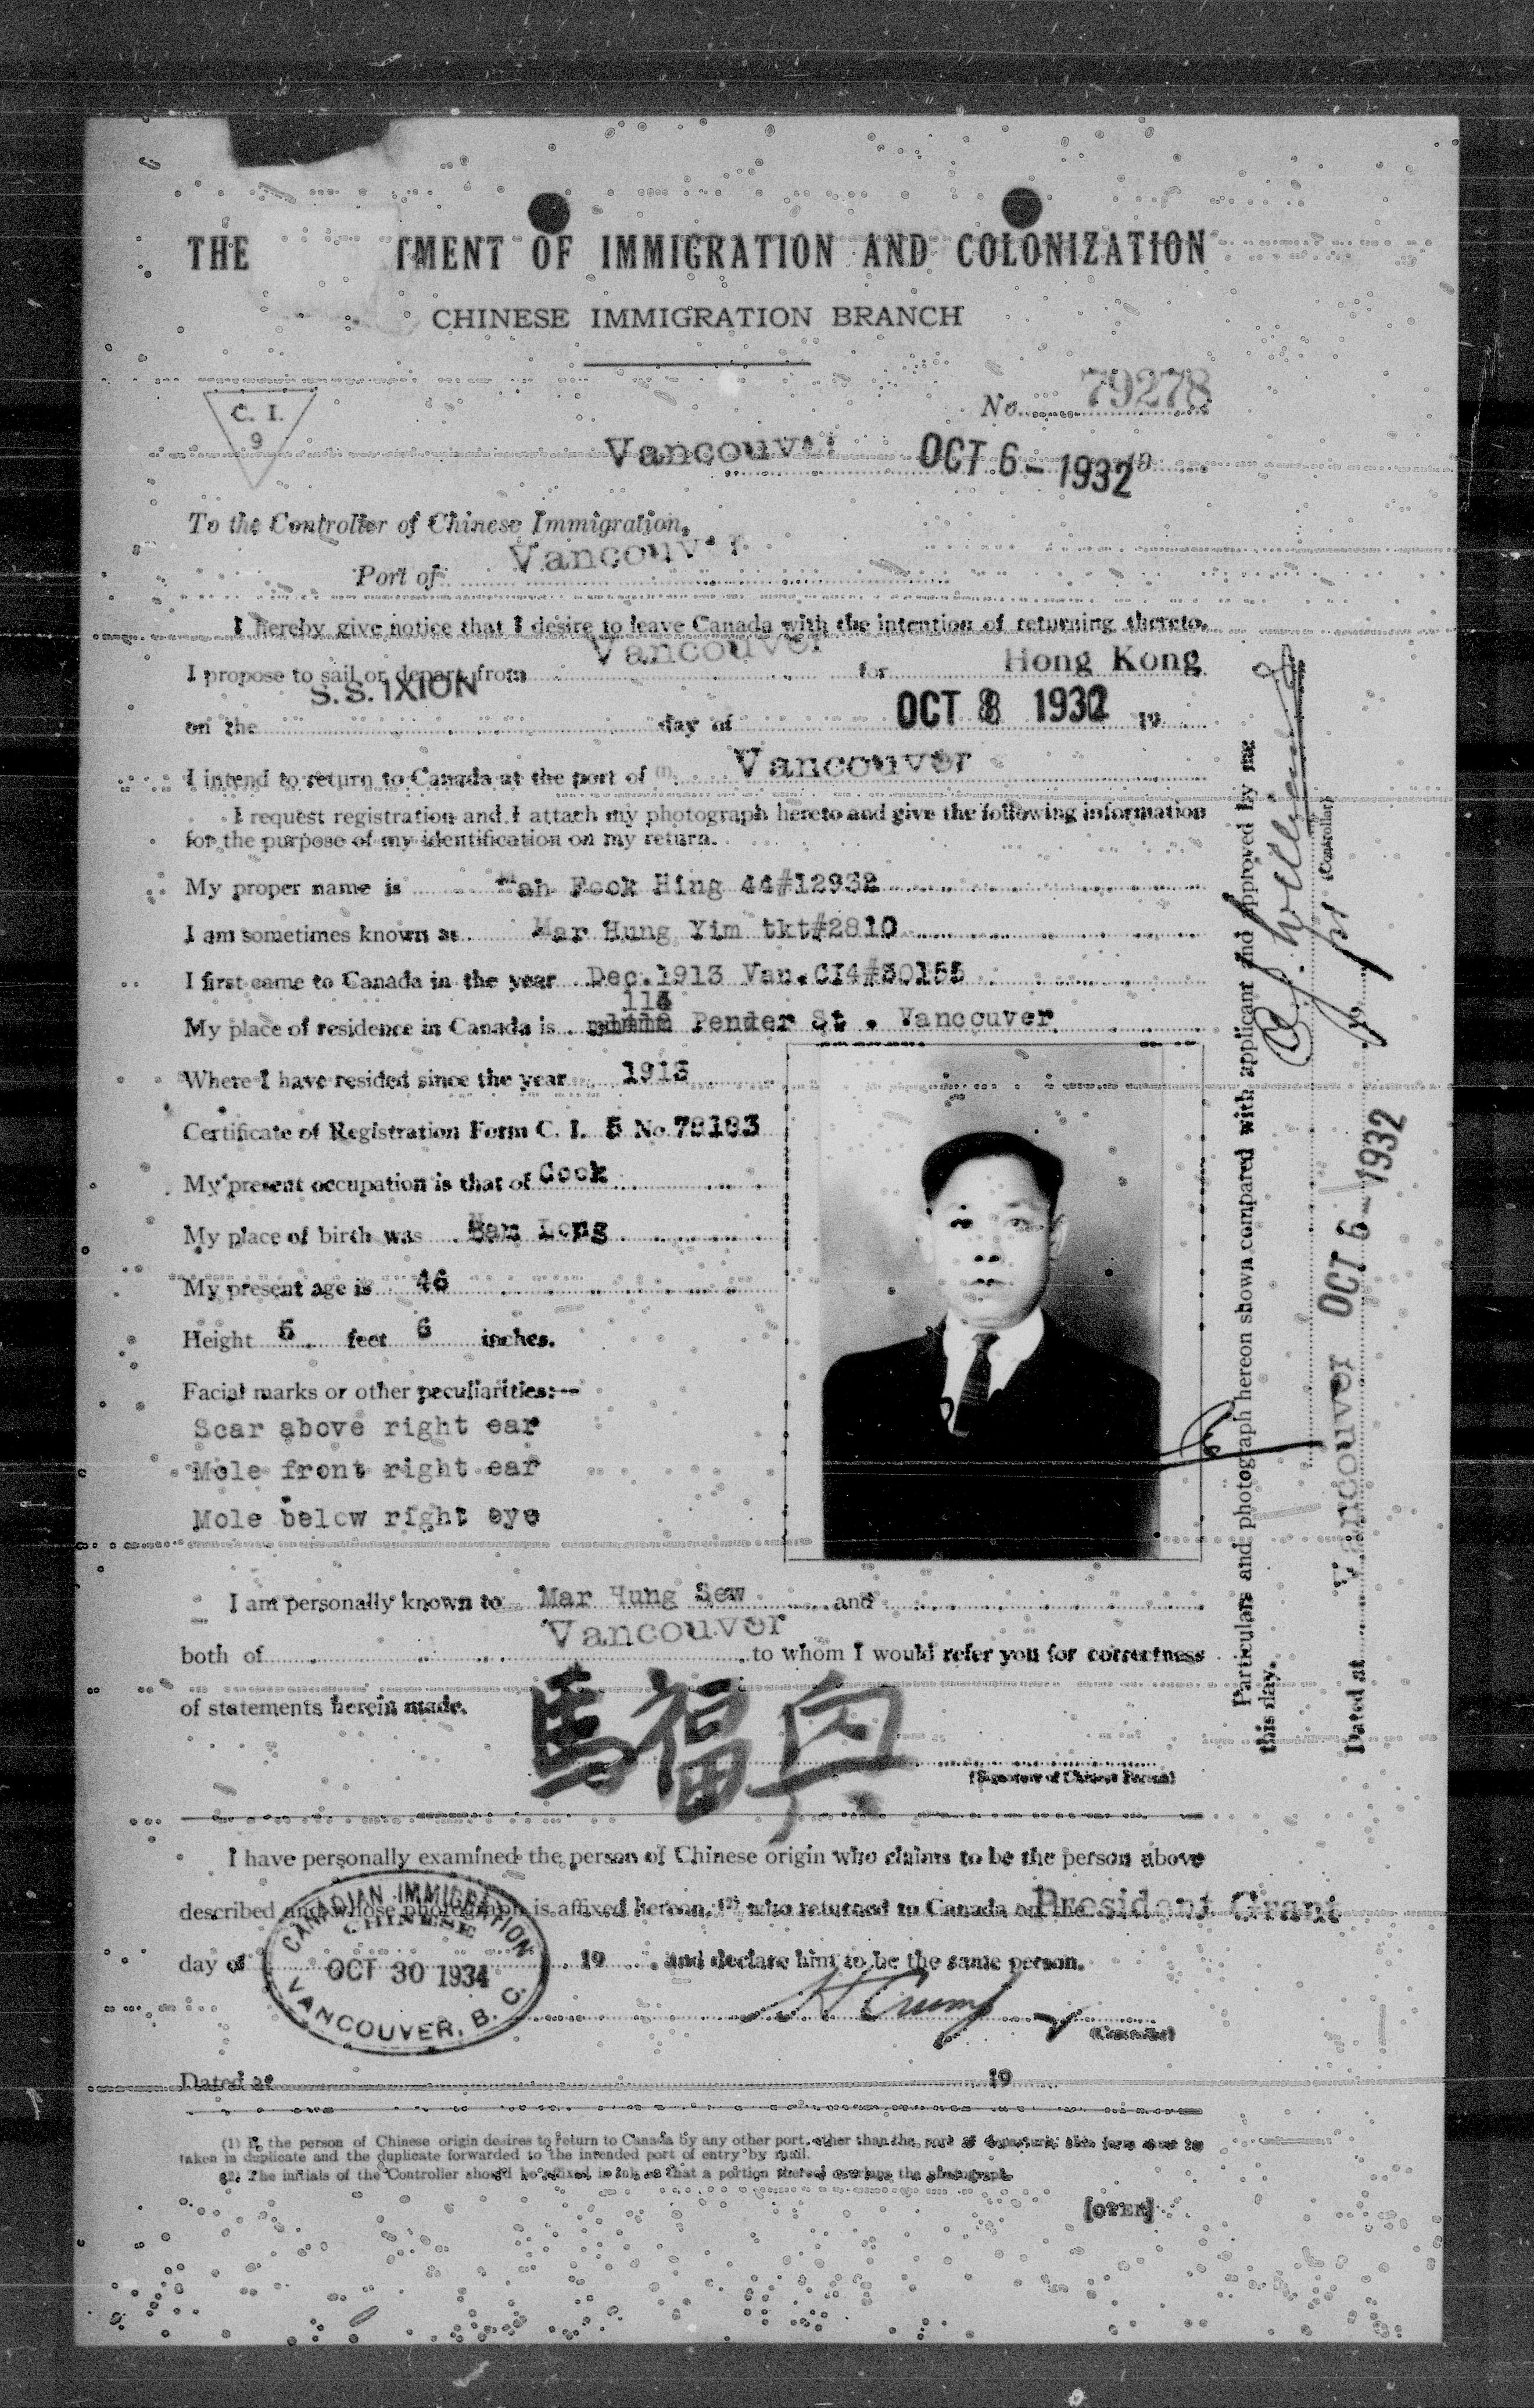 THE TMENT OF IMMIGRATION AND COLONIZATION
CHINESE IMMIGRATION BRANCH
C. I.
9
No. 79278
Vancouver OCT 6 - 1932 19
To the Controller of Chinese Immigration,
Port of Vancouver
I hereby give notice that I desire to leave Canada with the intention of returning thereto.
I propose to sail or depart from Vancouver for Hong Kong
on the S.S. IXION day of OCT 8 1932 19
I intend to return to Canada at the port of (1) Vancouver
I request registration and I attach my photograph hereto and give the following information
for the purpose of my identification on my return.
My proper name is Mah Fook Hing 44#12932
I am sometimes known as Mar Hung Yim tkt#2810
I first came to Canada in the year Dec.1913 Van.CI4#30155
My place of residence in Canada is Pender St. Vancouver
Where I have resided since the year 1913
Certificate of Registration Form C. I. 5 No.
My present occupation is that of Cook
My place of birth was Long
My present age is 46
Height 5 feet 6 inches.
Facial marks or other peculiarities:—
Scar above right ear
Mole front right ear
Mole below right eye
I am personally known to Mar Hung Sew and
both of Vancouver to whom I would refer you for correctness
of statements herein made.
馬福興
(Signature of Chinese Person)
I have personally examined the person of Chinese origin who claims to be the person above
described and whose photograph is affixed hereon, (2) who returned to Canada on the President Grant
day of 19 and declare him to be the same person.
CANADIAN IMMIGRATION
CHINESE
OCT 30 1934
VANCOUVER, B. C.
H Crump
(Controller)
Dated at 19
(1) If the person of Chinese origin desires to return to Canada by any other port other than the port of departure, this form must be
taken in duplicate and the duplicate forwarded to the intended port of entry by mail.
(2) The initials of the Controller should be affixed in ink so that a portion thereof overlaps the photograph.
[OVER]
Particulars and photograph hereon shown compared with applicant and approved by me
this day.
(Controller)
Dated at Vancouver OCT 6 - 1932 19